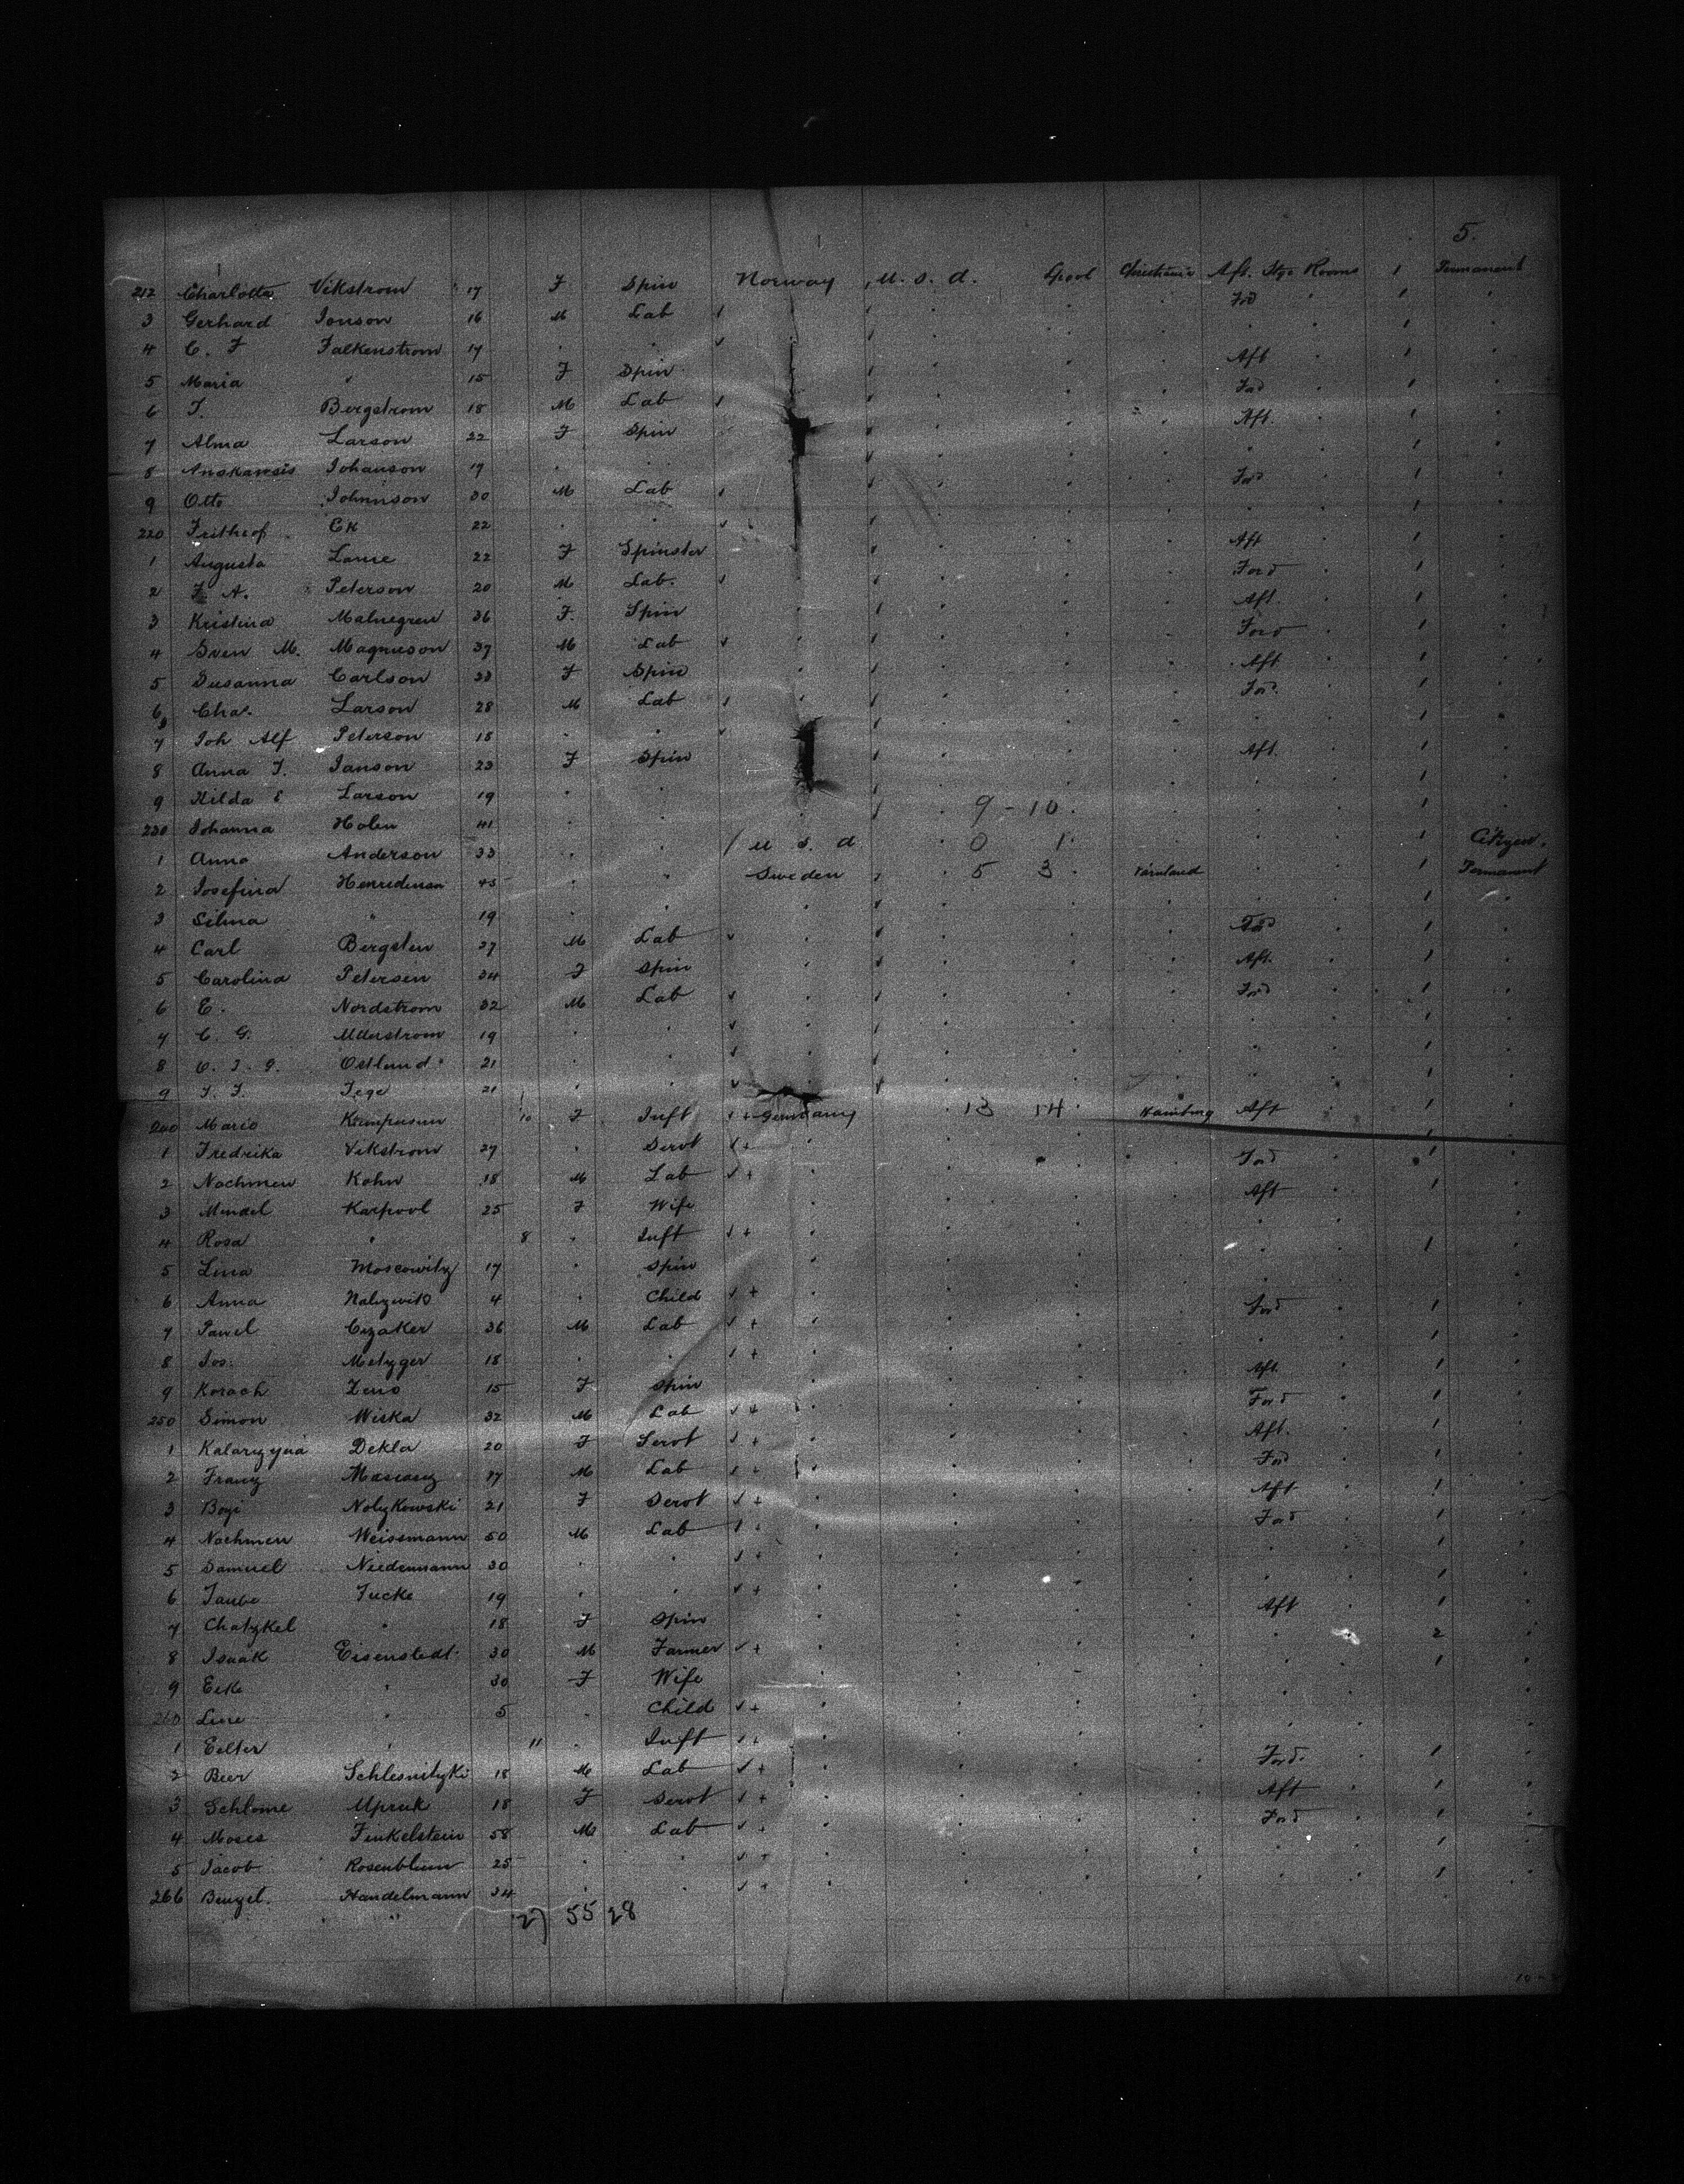 5.
212 Charlotta Vikstrom 17 F Spin Norway U. S. A. Lpool Christiania Aft. Stge Rooms 1 Permanent
3 Gerhard Jonson 16 M Lab " " " Ford " 1 "
4 C. F Falkenstrom 17 " " " " " " " 1 "
5 Maria " 15 F Spin " " " " Aft " 1 "
6 J. Bergstrom 18 M Lab " " " " Ford " 1 "
7 Alma Larson 22 F Spin " " " " Aft. " 1 "
8 Johanson 19 " " " " " " " " 1 "
9 Otto Johnnson 30 M Lab " " " " Ford " 1 "
220 Frithiof Ek 22 " " " " " " " " 1 "
1 Augusta 22 F Spinster " " " " Aft " 1 "
2 F. A. Peterson 20 M Lab. " " " " Ford " 1 "
3 Kristina Malmgren 36 F. Spin " " " " Aft. " 1 "
4 Sven M. Magnuson 37 M Lab " " " " Ford " 1 "
5 Susanna Carlson 33 F Spin " " " " Aft " 1 "
6 Chas. Larson 28 M Lab " " " " Ford. " 1 "
7 Joh Alf Peterson 18 " " " " " " " " 1 "
8 Anna J. Janson 23 F Spin " " " " Aft. " 1 "
9 Hilda E Larson 19 " " " " " " " " 1 "
230 Johanna Holen 41 " " " " 9 - 10 " " " 1 "
1 Anna Anderson 33 " " U S. A " 0 1 " " " 1 Citizen.
2 Josefina 45 " " Sweden " 5 3 Värmland " " 1 Permanent
3 Selma " 19 " " " " " " " " 1 "
4 Carl Bergsten 27 M Lab " " " " Ford " 1 "
5 Carolina Petersen 34 F Spin " " " " Aft. " 1 "
6 E. Nordstrom 32 M Lab " " " " Ford " 1 "
7 C. G. 19 " " " " " " " " 1 "
8 O. J. G. Ostlund 21 " " " " " " " " 1 "
9 J. J. 21 " " " " " " " " 1 "
240 Maria 10 F Inft + Germany 13 14 Hamburg Aft " 1 "
1 Fredrika Vikstrom 27 " Servt + " " " " " 1 "
2 Nachmen Kohn 18 M Lab + " " " Ford " 1 "
3 Mindel Karpovl 25 F Wife " " " " Aft " 1 "
4 Rosa " 8 " Inft + " " " " " "
5 Lina Moscowitz 17 " Spin " " " " " " 1 "
6 Anna 4 " Child + " " " " " "
7 Pawel Czaker 36 M Lab + " " " Ford " 1 "
8 Jos. Metzger 18 " " + " " " " " 1 "
9 Korach Zeno 15 F Spin " " " " Aft. " 1 "
250 Simon Wiska 32 M Lab + " " " Ford " 1 "
1 Dekla 20 F Servt + " " " Aft. " 1 "
2 Franz 17 M Lab + " " " Ford " 1 "
3 21 F Servt + " " " Aft " 1 "
4 Nachmen Weissmann 50 M Lab + " " " Ford " 1 "
5 Samuel Niedermann 30 " " + " " " " " 1 "
6 Taube Fucke 19 " " + " " " " " 1 "
7 Chatzkel " 18 F Spin " " " " Aft " 1 "
8 Isaak Eisenstedt 30 M Farmer + " " " " " 2 "
9 " 30 F Wife " " " " " " 1 "
260 Line " 5 " Child + " " " " " "
1 " 11 " Inft + " " " " " "
2 Beer Schlesnitzki 18 M Lab + " " " Ford. " 1 "
3 Schlome 18 F Servt + " " " Aft " 1 "
4 Moses Finkelstein 58 M Lab + " " " Ford " 1 "
5 Jacob Rosenblum 25 " " + " " " " " 1 "
266 Benzel. Handelmann 34 " " + " " " " " 1 "
27 55 28